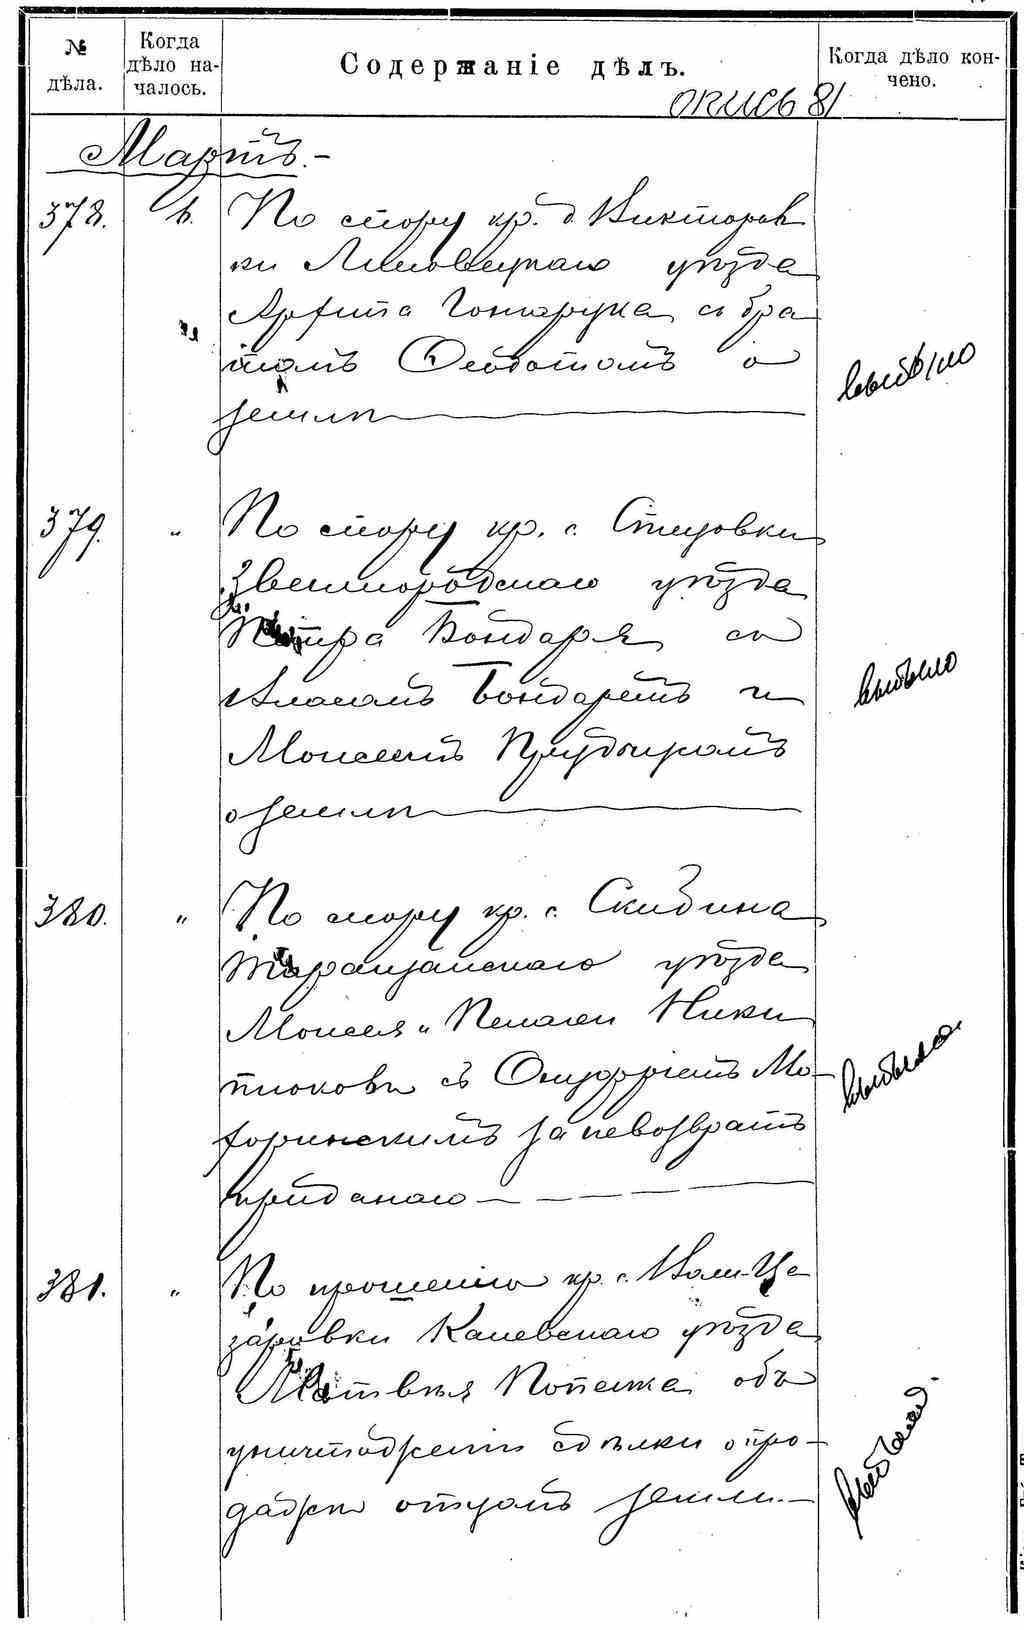 № дѣла.
Когда дѣло на-
чалось.
Содержаніе дѣлъ.
Когда дѣло кон-
чено.
опись 81
Мартъ.-
378.
6.
По спору кр. д. Викторов
ки Липовецкаго уѣзда
Арфипа Гончарука съ бра
томъ Ѳеодотомъ о
землѣ
выбыло
379.
"
По спору кр. с. Стецовки
Звенигородскаго уѣзда
Петра Бондаря со
Власомъ Бондаремъ и
Моисеемъ
о землѣ
выбыло
380.
"
По спору кр. с. Скибина
Таращанскаго уѣзда
Моисея и Пелагеи Ники
тюковы съ Онуфріемъ Мо-
форинскимъ за невозвратъ
приданаго
выбыло
381.
"
По прошенію кр. с. Цe
заровки Каневскаго уѣзда
Матвѣя об
уничтоженіи сдѣлки о про-
дажи отцомъ земли.-
выбыло